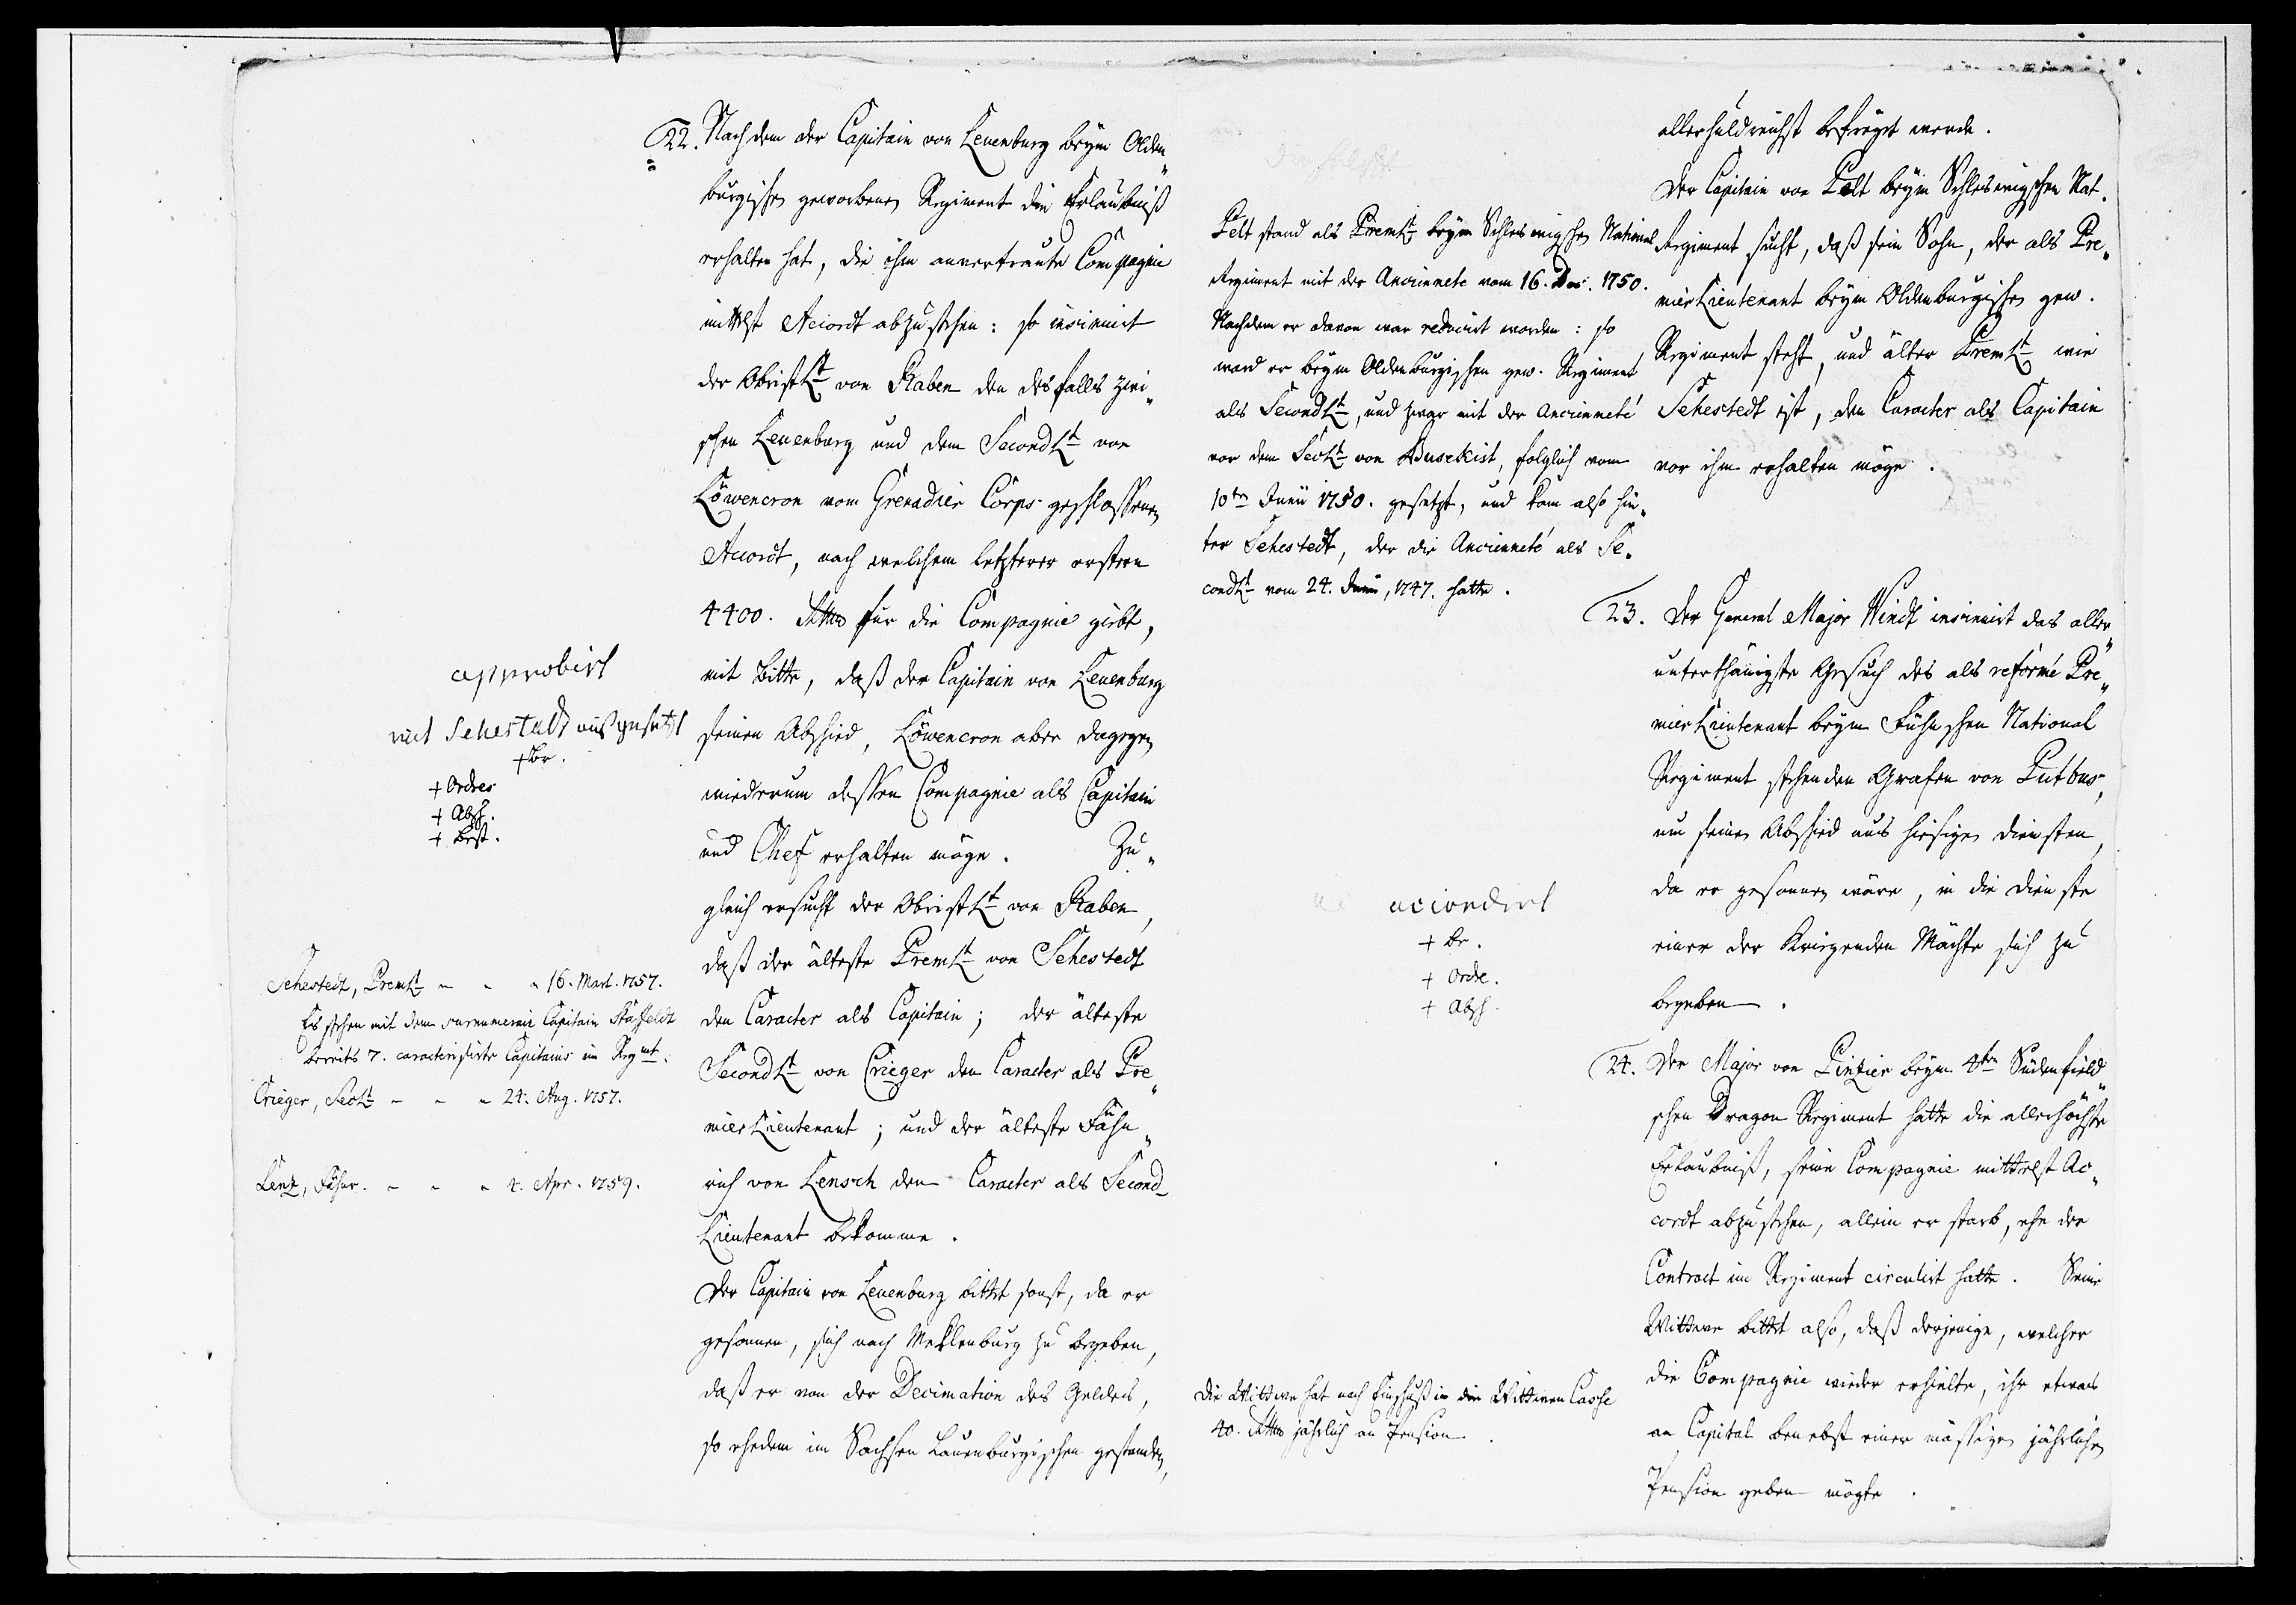 22. Nachdem der Capitain von Leuenburg beym Olden„
burgischen geworbenen Regiment die Erlaubniß
erhalten hat, die ihm anvertraute Compagnie
mittelst Accordt abzustehen: so insinuirt
der ObristLt von Raben den desfalls zwi„
schen Leuenburg und dem SecondLt von
Löwencron vom Grenadier Corps geschlossenen
Accordt, nach welchem letzterer erstern
4400. Rthlr für die Compagnie giebt,
mit Bitte, daß der Capitain von Leuenburg
seinen Abschied, Löwencron aber dagegen
wiederum dessen Compagnie als Capitain
und Chef erhalten möge. Zu„
gleich ersucht der ObristLt von Raben,
daß der älteste PremLt von Sehestedt
den Caracter als Capitain; der älteste
SecondLt von Crieger den Caracter als Pre„
mierLieutenant; und der älteste Fähn„
rich von Lensch den Caracter als Second-
Lieutenant bekomme.
Der Capitain von Leuenburg bittet sonst, da er
gesonnen, sich nach Meklenburg zu begeben,
daß er von der Decimation des Geldes,
so ehedem im Sachsen Lauenburgischen gestanden,
approbirt
mit Sehestedt ausgesetzt
+ Br.
+ Ordres
+ Absch.
+ Best.
Sehestedt, PremLt - - - 16. Mart. 1757.
Es stehen mit dem surnumerair Capitain Staffeldt
bereits 7. caracterisirte Capitains im Regmt.
Crieger, SecLt - - - 24. Aug. 1757.
Lenz, Fähnr. - - - 4. Apr. 1759.
allerhuldreichst befreyet werde.
Der Capitain von Pelt beym Schleswigschen Nat.
Regiment sucht, daß sein Sohn, der als Pre„
mierLieutenant beym Oldenburgischen gew.
Regiment steht, und älter PremLt wie
Sehestedt ist, den Caracter als Capitain
vor ihm erhalten möge.
Pelt stand als PremLt beym Schleswigschen National
Regiment mit der Ancienneté vom 16. Dec. 1750.
Nachdem er davon war reducirt worden: so
ward er beym Oldenburgischen gew. Regiment
als SecondLt, und zwar mit der Ancienneté
vor dem SecLt von Buseckist, folglich vom
10ten Junii 1750. gesetzt, und kam also hin„
ter Sehestedt, der die Ancienneté als Se„
condLt vom 24. Junii, 1747. hatte.
23. Der General Major Windt insinuirt das aller„
unterthänigste Gesuch des als reformé Pre„
mierLieutenant beym Fühnschen National
Regiment stehenden Grafen von Putbus,
um seinen Abschied aus hiesigen Diensten,
da er gesonnen wäre, in die Dienste
einer der Kriegenden Mächte sich zu
begeben.
accordirt
+ Br.
+ Ordre.
+ Absch.
24. Der Major von Pinzier beym 4ten Südenfield„
schen Dragon Regiment hatte die allerhöchste
Erlaubniß, seine Compagnie mittelst Ac„
cordt abzustehen, allein er starb, ehe der
Contract im Regiment circulirt hatte. Seine
Wittwe bittet also, daß derjenige, welcher
die Compagnie wieder erhielte, ihr etwas
an Capital benebst einer mässigen jährlichen
Pension geben mögte.
Die Wittwe hat nach Einschuß in die Wittwen Casse
40. Rthlr jährlich an Pension.